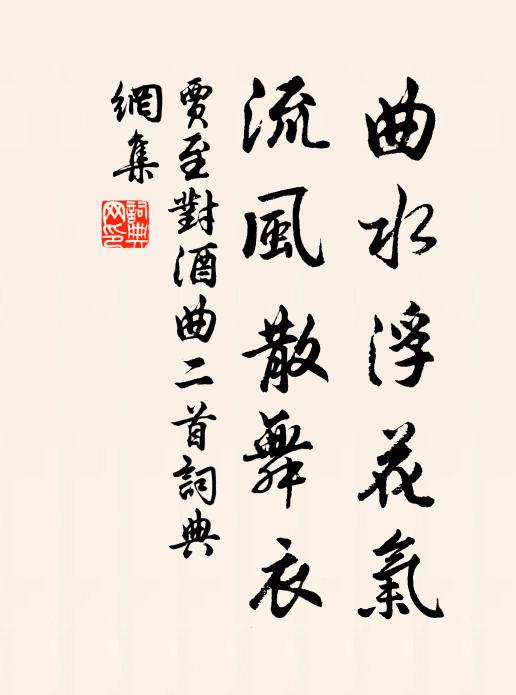 曲水浮花氣
流風散舞衣
賈至對酒曲二首詞典
網集
詞典
网印